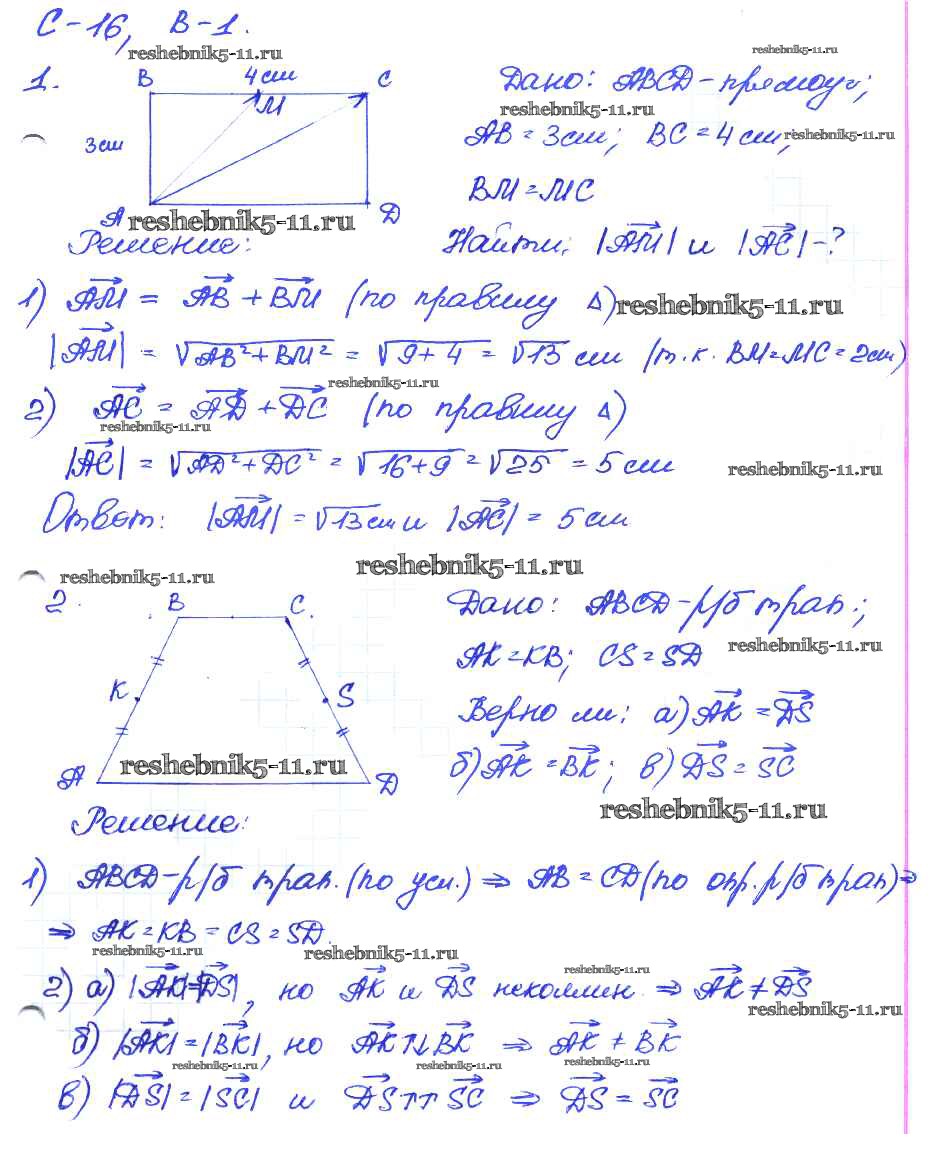 С-16, В-1.
reshebnik5-11.ru
reshebnik5-11.ru
1.
B 4 см C
M
3 см
A D
reshebnik5-11.ru
Дано: ABCD - прямоуг;
reshebnik5-11.ru
AB = 3 см; BC = 4 см; reshebnik5-11.ru
BM = MC
Найти: |AM| и |AC| - ?
Решение:
1) AM = AB + BM (по правилу Δ) reshebnik5-11.ru
|AM| = √AB² + BM² = √9 + 4 = √13 см (т.к. BM = MC = 2 см)
reshebnik5-11.ru
2) AC = AD + DC (по правилу Δ)
reshebnik5-11.ru
|AC| = √AD² + DC² = √16 + 9 = √25 = 5 см reshebnik5-11.ru
Ответ: |AM| = √13 см и |AC| = 5 см
reshebnik5-11.ru
reshebnik5-11.ru
2.
B C
K S
A D
reshebnik5-11.ru
Дано: ABCD - р/б трап.;
reshebnik5-11.ru
AK = KB; CS = SD
Верно ли: а) AK = DS
б) AK = BK; в) DS = SC
reshebnik5-11.ru
Решение:
1) ABCD - р/б трап. (по усл.) ⇒ AB = CD (по опр. р/б трап) ⇒
⇒ AK = KB = CS = SD.
reshebnik5-11.ru reshebnik5-11.ru
reshebnik5-11.ru
2) а) |AK| = |DS|, но AK и DS неколлин. ⇒ AK ≠ DS
reshebnik5-11.ru
б) |AK| = |BK|, но AK ↑↓ BK ⇒ AK ≠ BK
reshebnik5-11.ru reshebnik5-11.ru reshebnik5-11.ru
в) |DS| = |SC| и DS ↑↑ SC ⇒ DS = SC